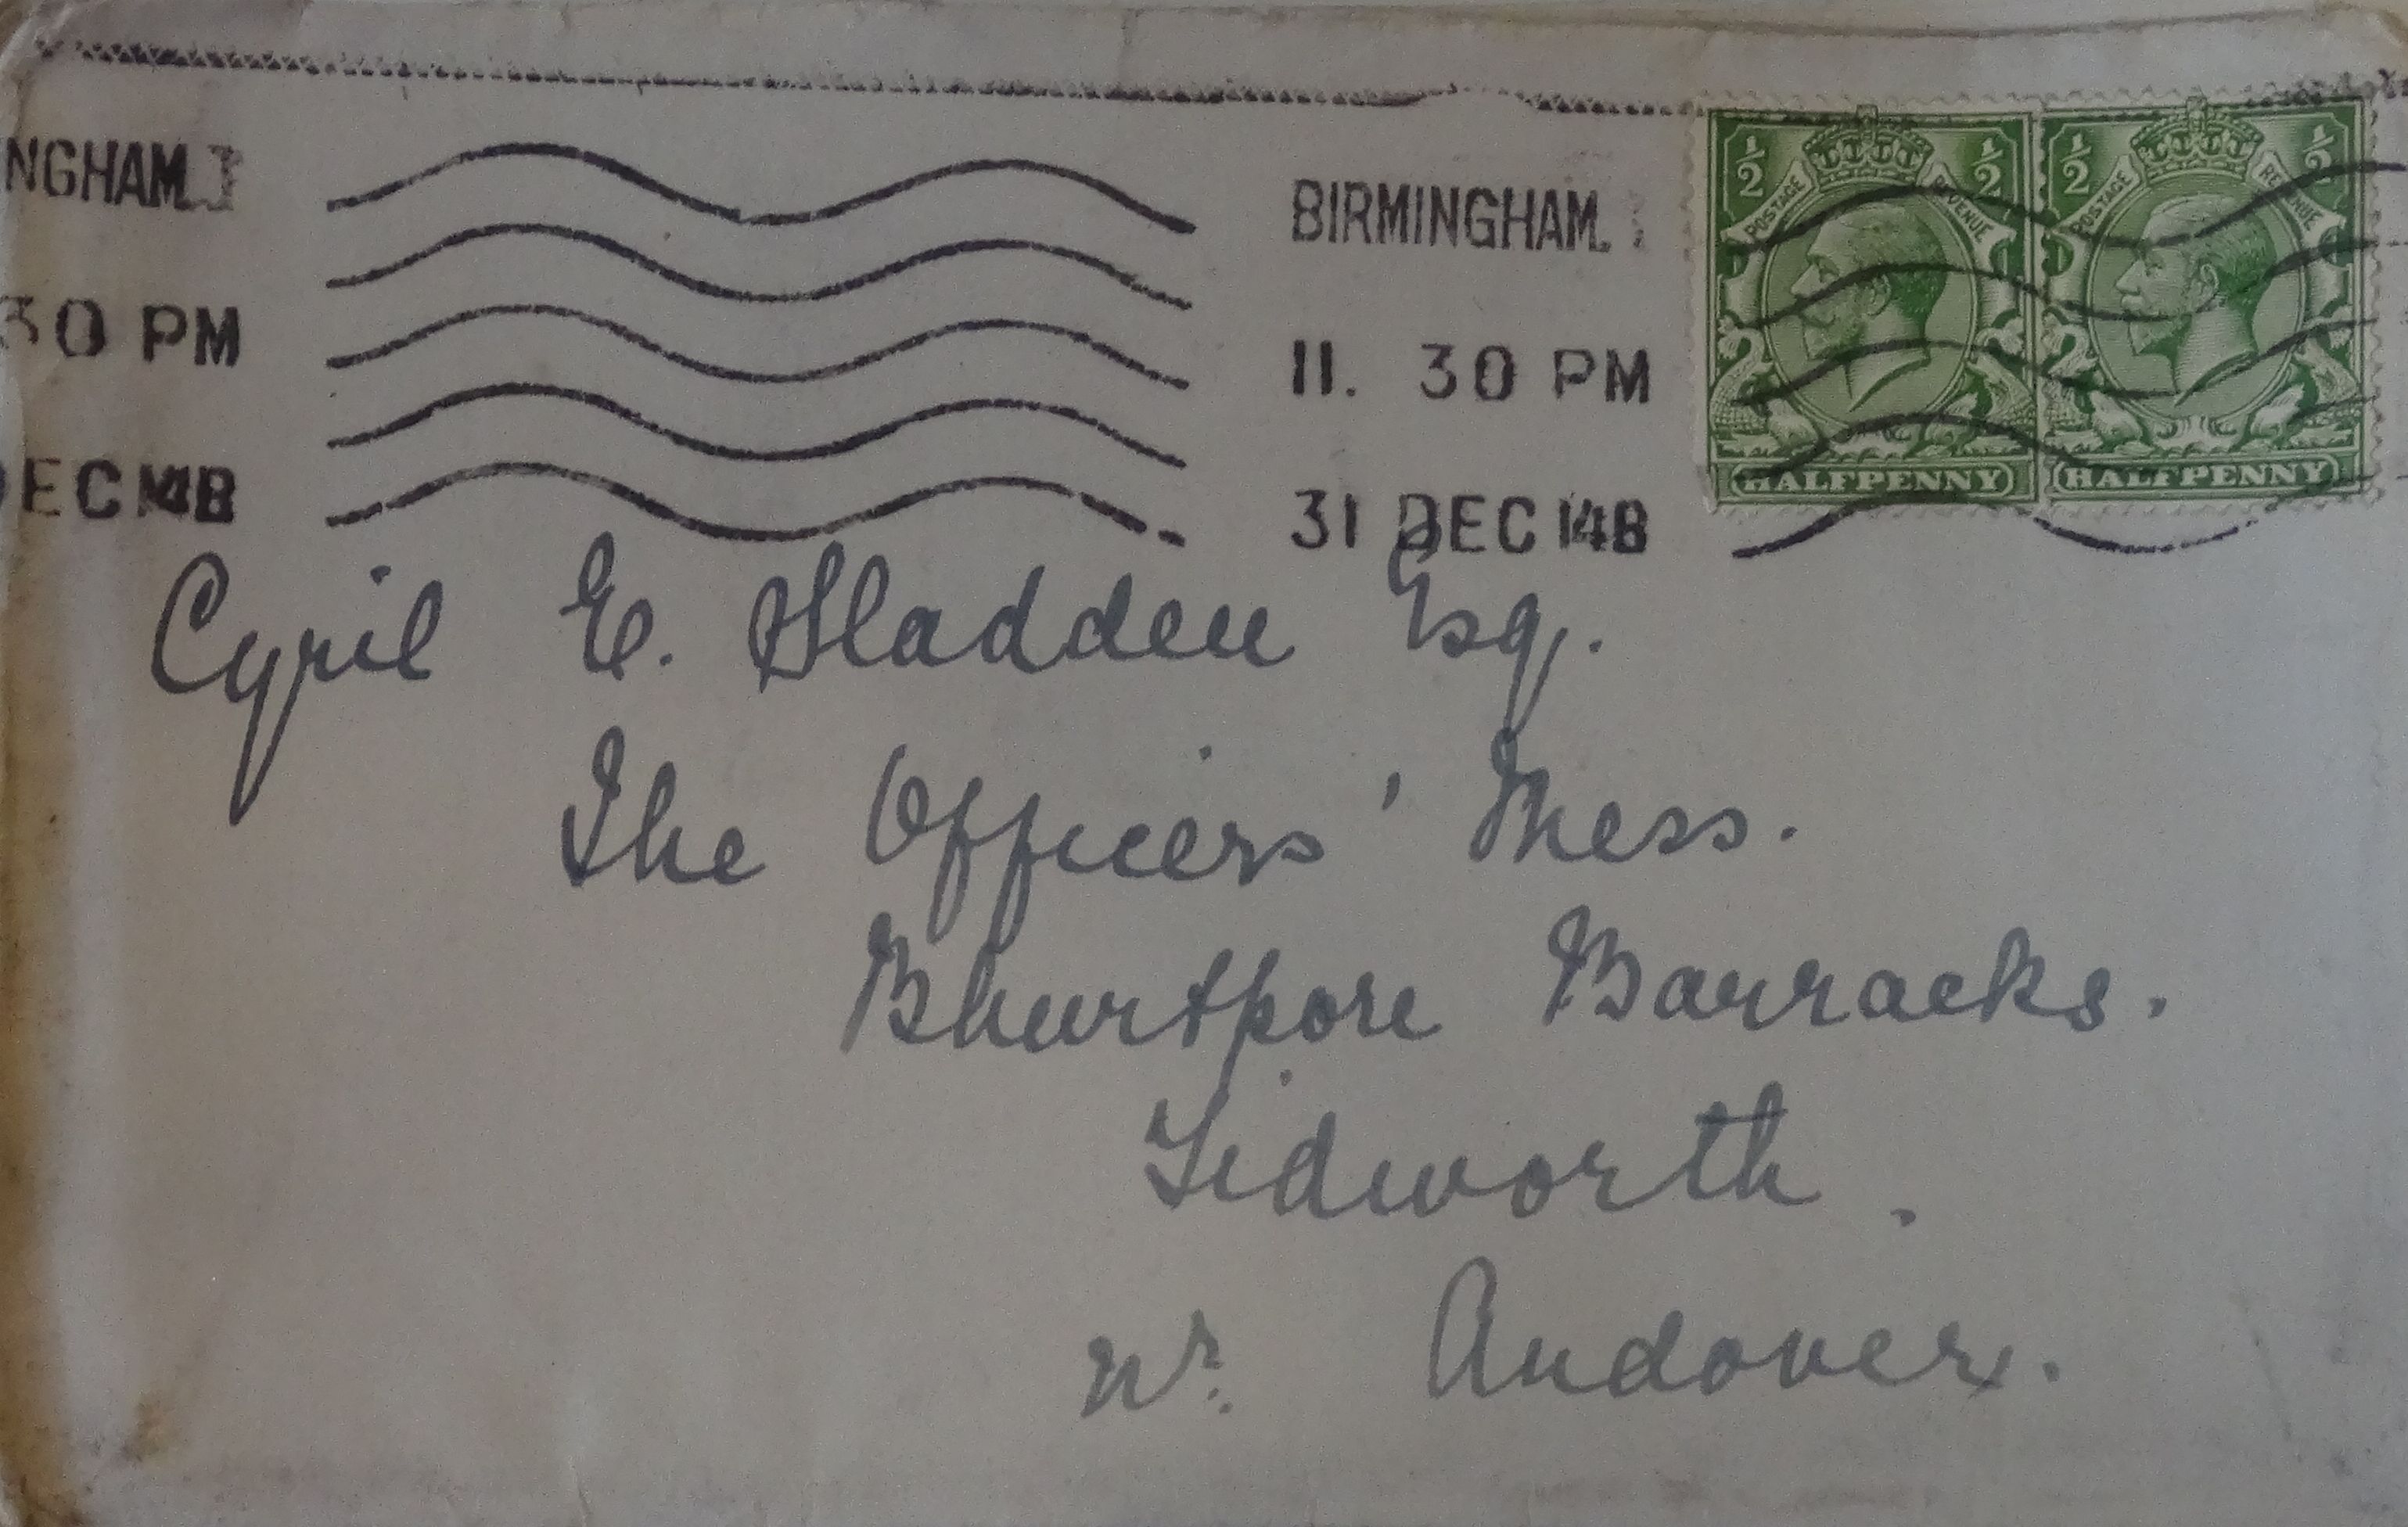 NGHAM.
BIRMINGHAM.
30 PM
11. 30 PM
EC 14B
31 DEC 14B
½ ½ ½ ½
POSTAGE REVENUE POSTAGE REVENUE
HALFPENNY HALFPENNY
Cyril E. Sladden Esq.
The Officers' Mess.
Bhurtpore Barracks.
Tidworth.
Nr. Andover.